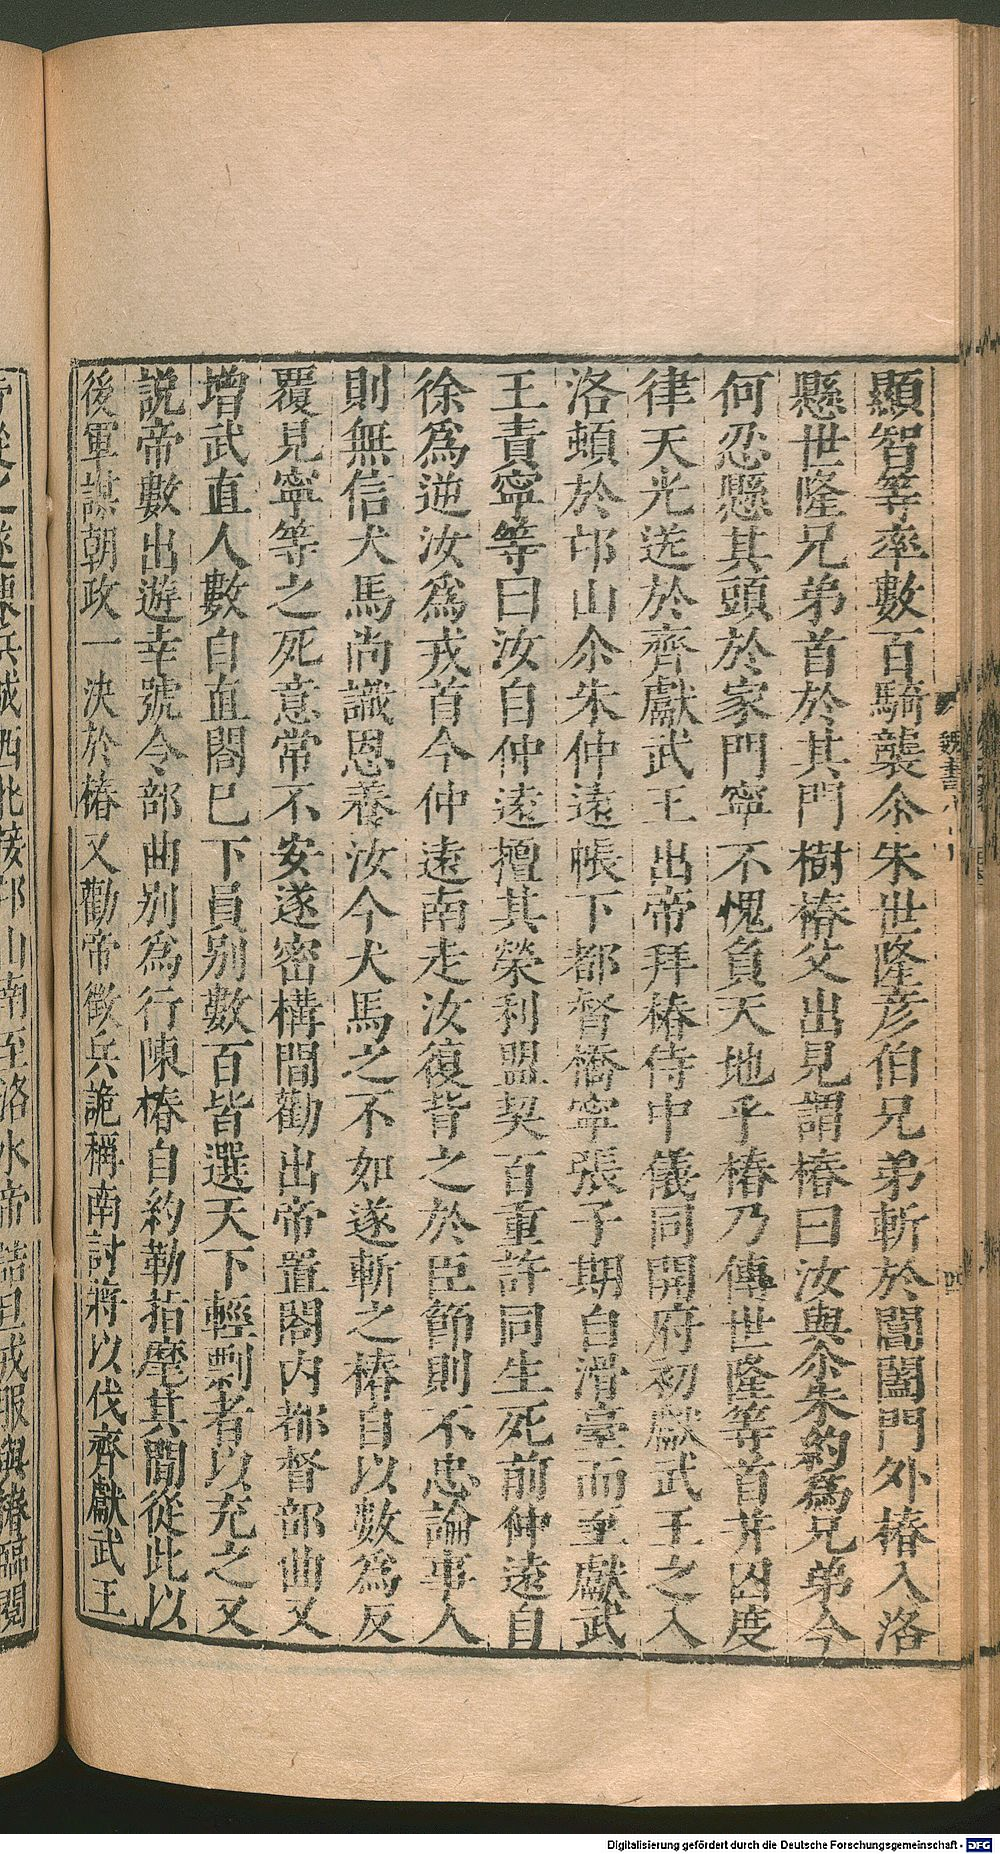 顯智等率數百騎襲尒朱世隆彥伯兄弟斬於閶闔門外椿入洛
懸世隆兄弟首於其門樹椿父出見謂椿曰汝與尒朱約爲兄弟今
何忍懸其頭於家門寧不愧負天地乎椿乃傳世隆等首并囚度
律天光送於齊獻武王出帝拜椿侍中儀同開府初獻武王之入
洛頓於邙山尒朱仲遠帳下都督橋寧張子期自滑臺而至獻武
王責寧等曰汝自仲遠擅其榮利盟契百重許同生死前仲遠自
徐爲逆汝爲戎首今仲遠南走汝復背之於臣節則不忠論事人
則無信犬馬尚識恩養汝今犬馬之不如遂斬之椿自以數爲反
覆見寧等之死意常不安遂密構間勸出帝置閤內都督部曲又
增武直人數自直閤已下員别數百皆選天下輕剽者以充之又
說帝數出遊幸號令部曲别爲行陳椿自約勒指麾其間從此以
後軍謀朝政一決於椿又勸帝徵兵詭稱南討將以伐齊獻武王
帝從之遂陳兵城西北接邙山南至洛水帝詰旦戎服與椿臨閱
魏書
四
Digitalisierung gefördert durch die Deutsche Forschungsgemeinschaft - DFG